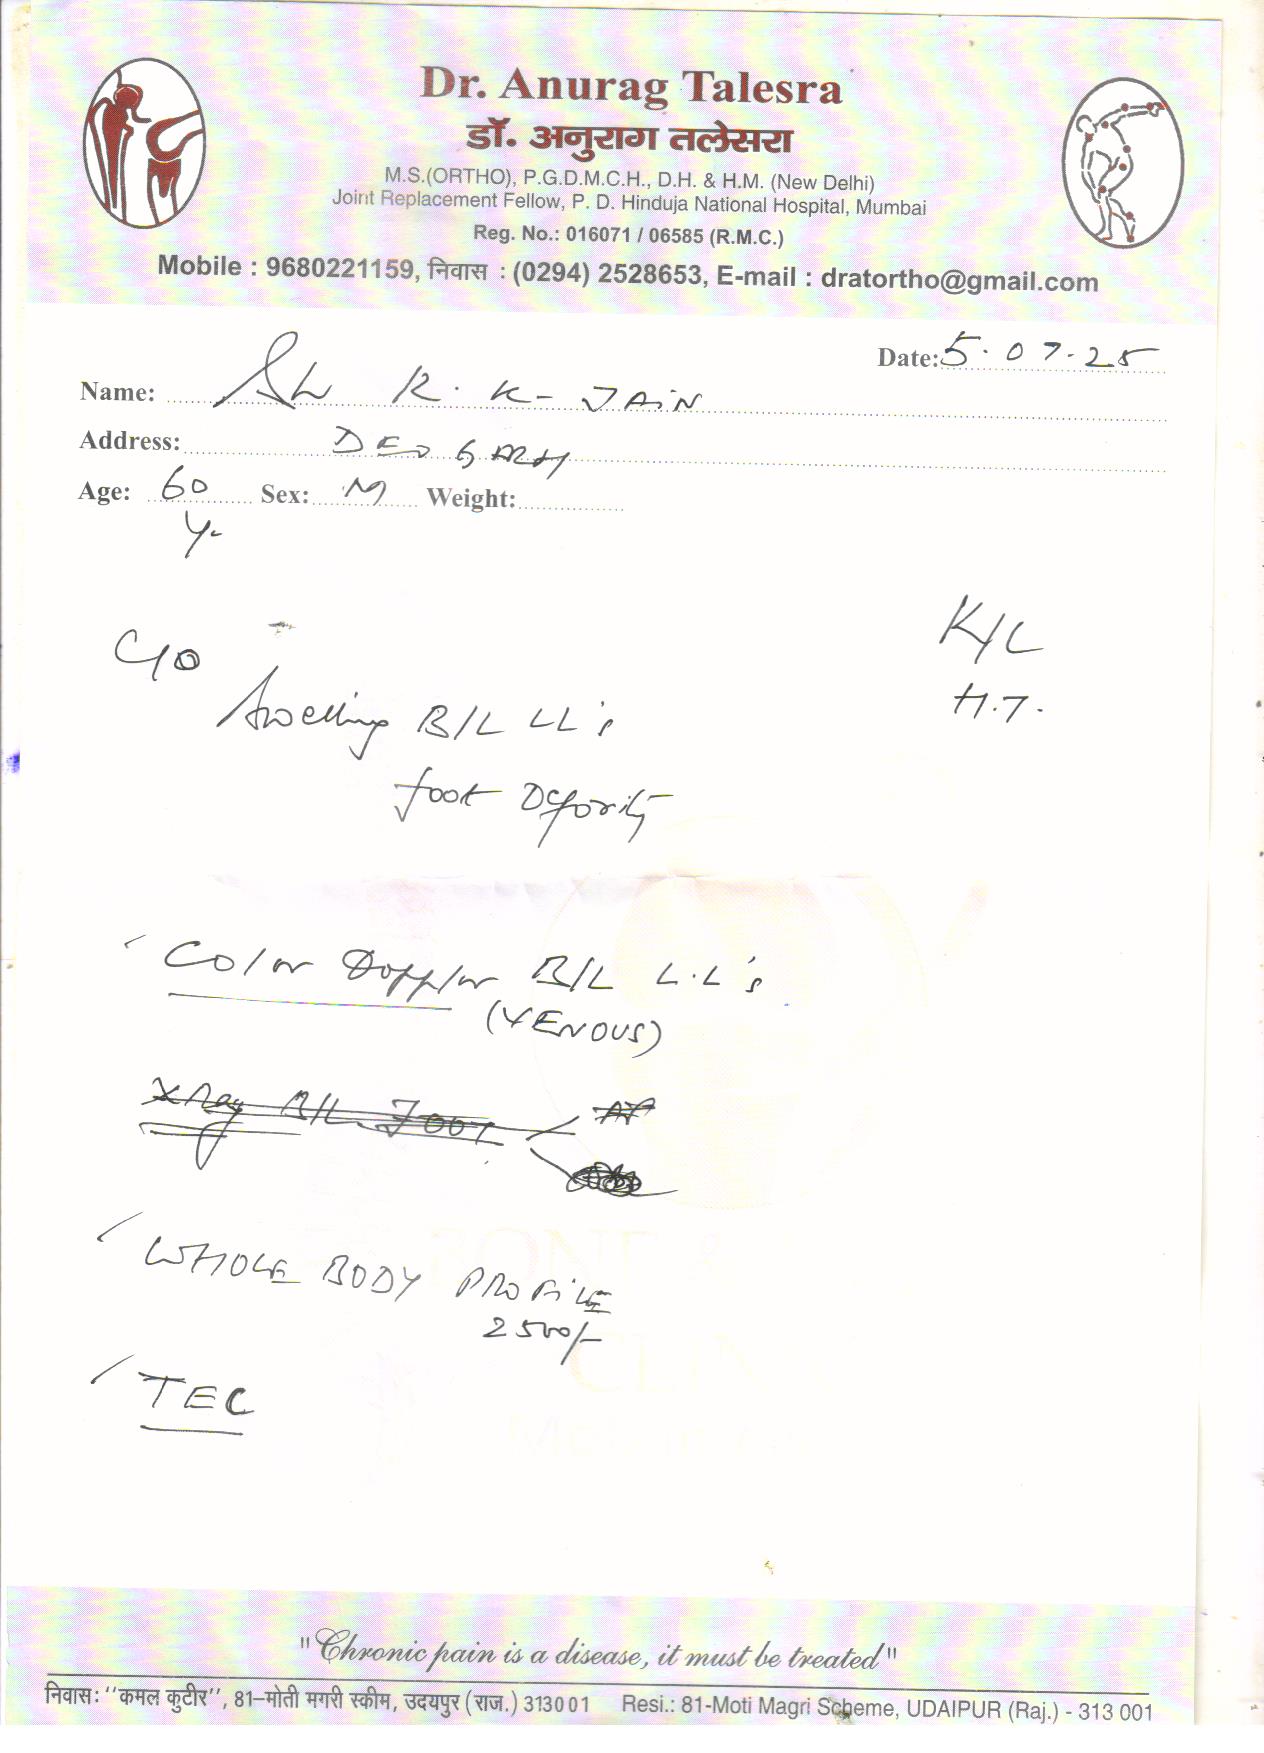 Dr. Anurag Talesra
डॉ. अनुराग तलेसरा
M.S.(ORTHO), P.G.D.M.C.H., D.H. & H.M. (New Delhi)
Joint Replacement Fellow, P. D. Hinduja National Hospital, Mumbai
Reg. No.: 016071 / 06585 (R.M.C.)
Mobile : 9680221159, निवास : (0294) 2528653, E-mail : dratortho@gmail.com
Date: 5.07.25
Name: Sh R.K- JAiN
Address: DEOGARH
Age: 60 Sex: M Weight:
Y.
C/O
K/C
H.T.
Swelling B/L LL's
foot Deformity
Color Doppler B/L L.L's
(VENOUS)
X Ray B/L FOOT AP
WHOLE BODY PROFiLE
2500/-
TEC
"Chronic pain is a disease, it must be treated"
निवास: "कमल कुटीर", 81–मोती मगरी स्कीम, उदयपुर (राज.) 313001 Resi.: 81-Moti Magri Scheme, UDAIPUR (Raj.) - 313 001